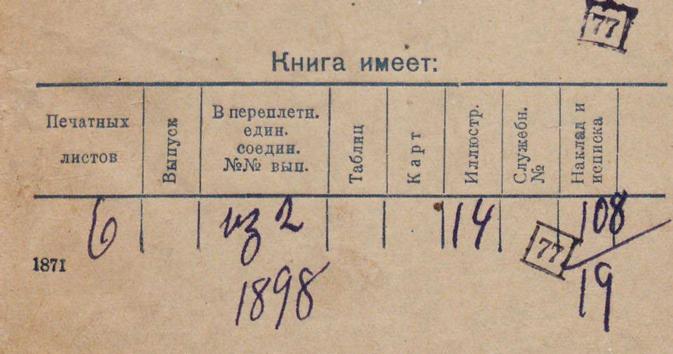 77
Книга имеет:
Печатных листов
Выпуск
В переплетн. един. соедин. №№ вып.
Таблиц
Карт
Иллюстр.
Служебн. №
Наклад и исписка
6
из 2
14
108
77
1871
1898
19